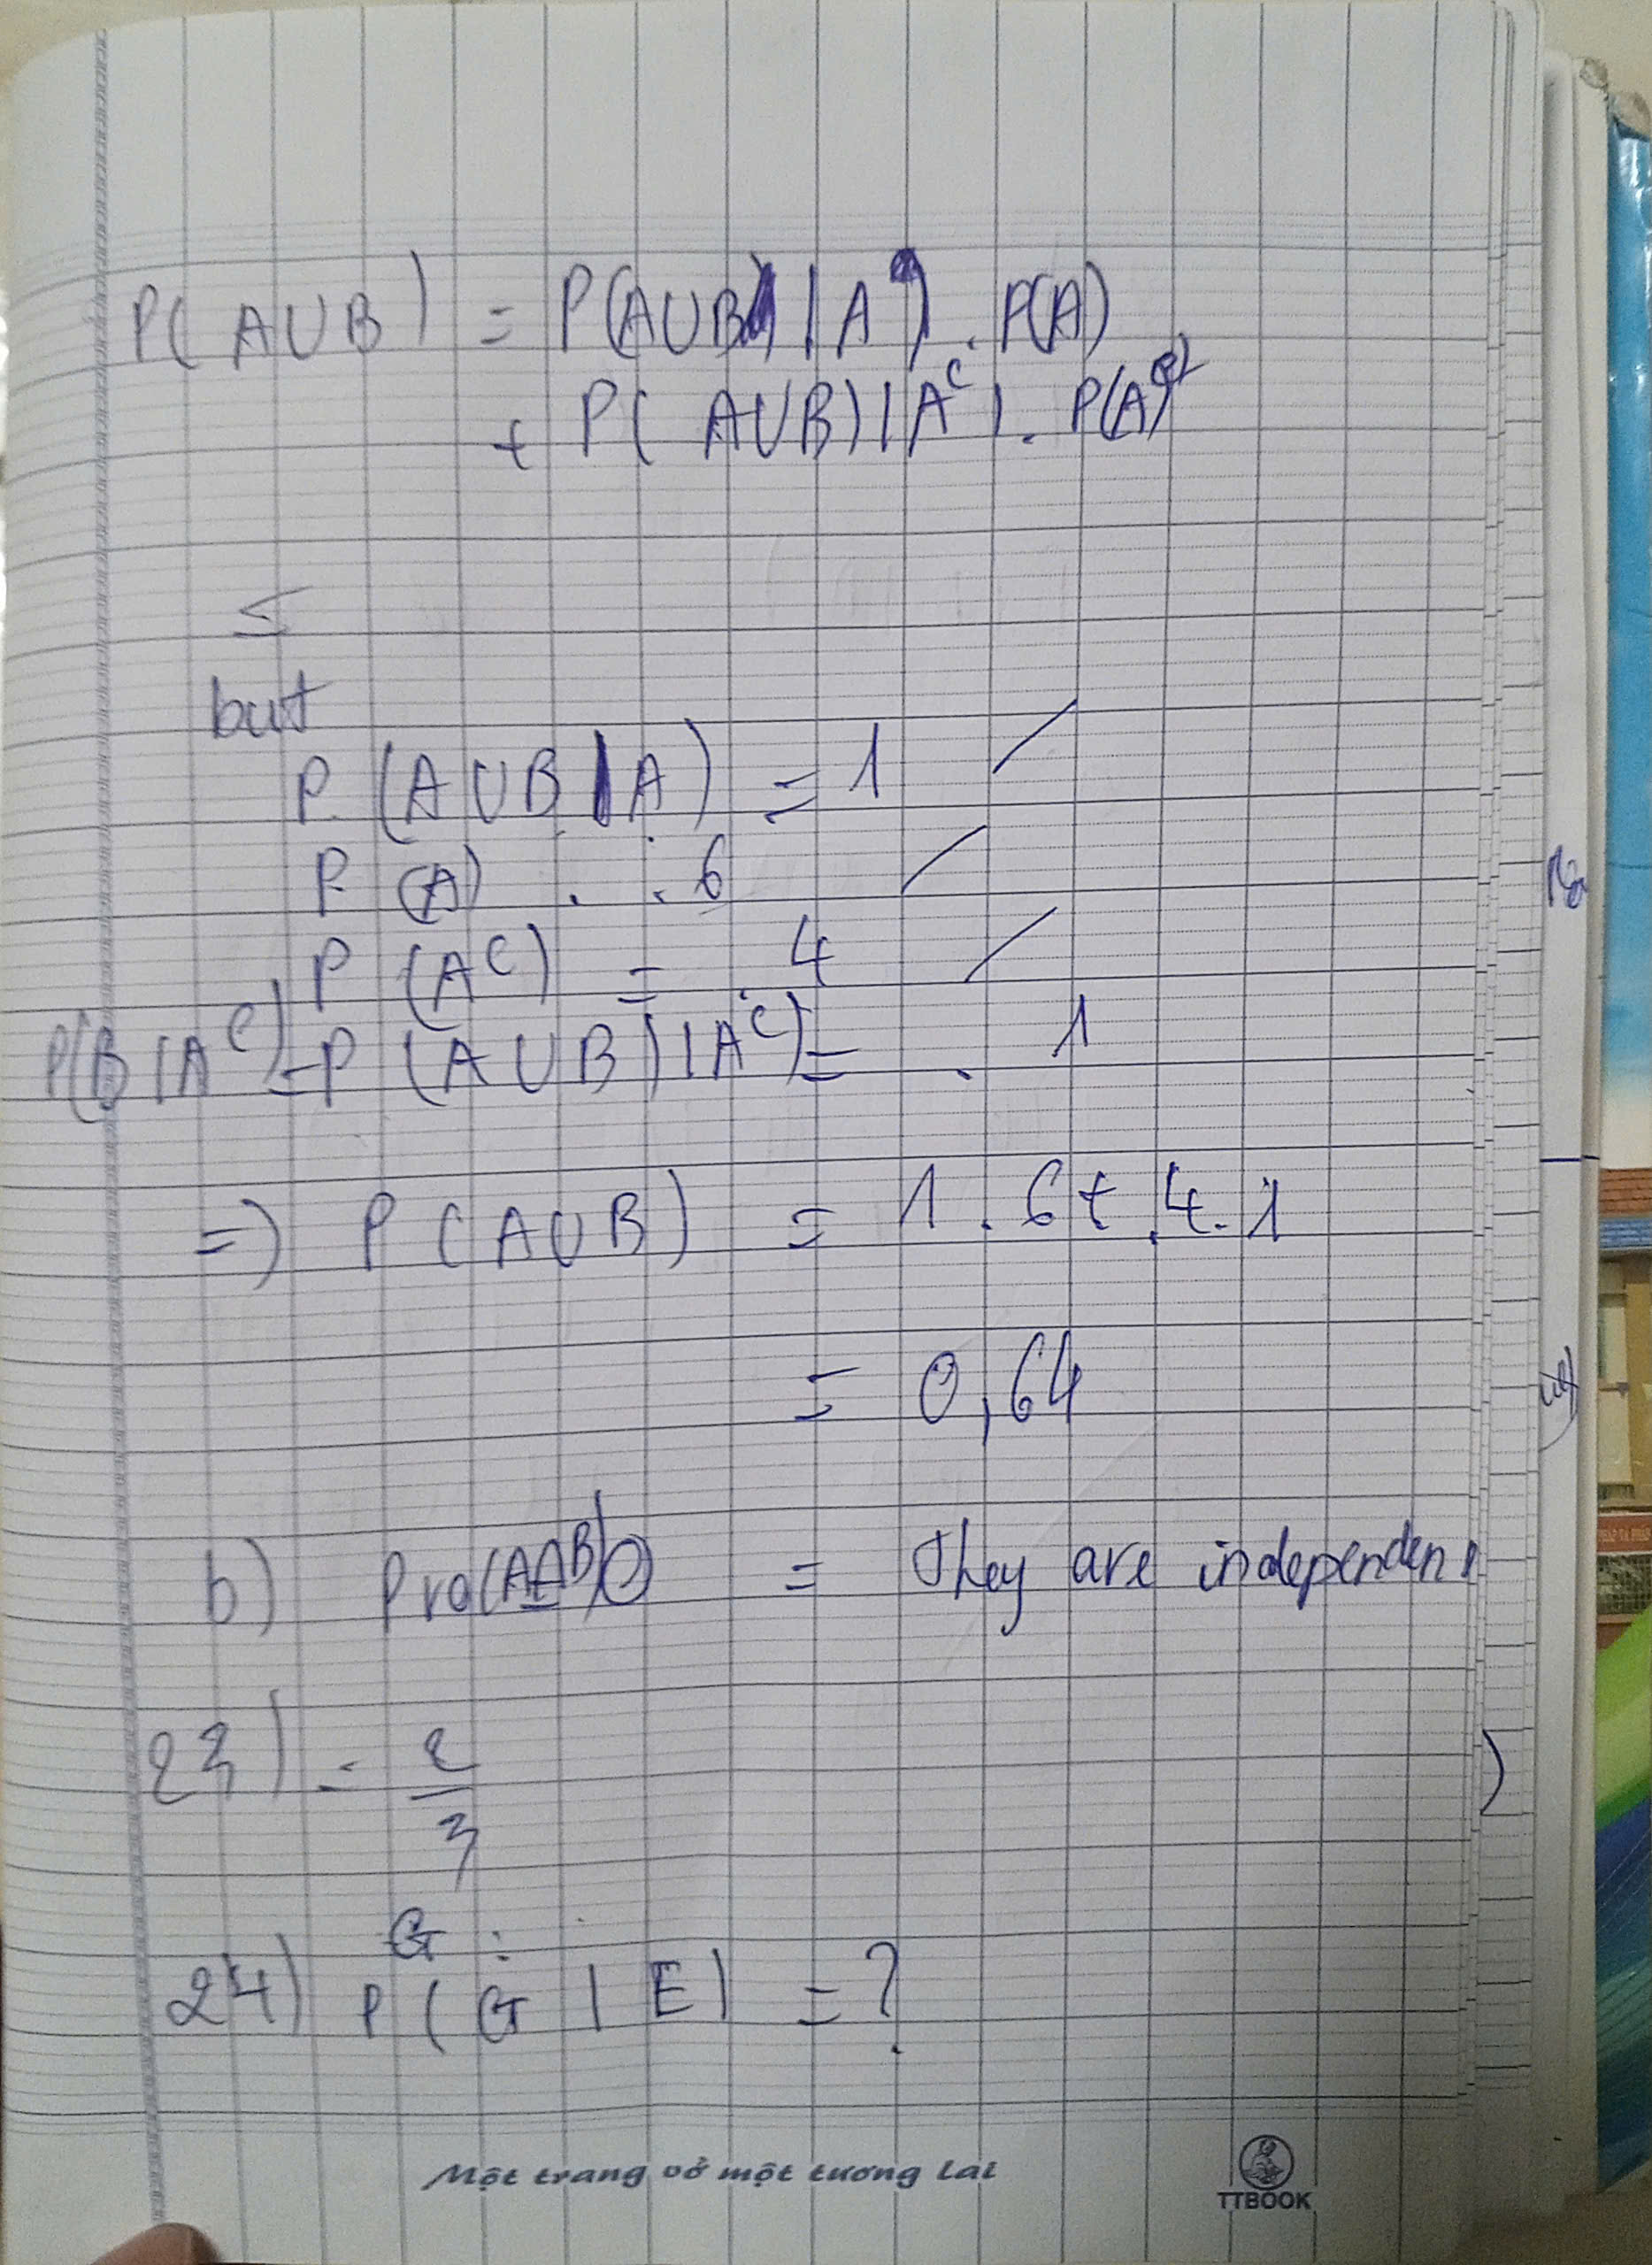 P(A∪B) = P(A∪B)|A).P(A)
+ P(A∪B)|Aᶜ). P(Aᶜ)
≤
but
P(A∪B|A) = 1
P(A) = .6
P(Aᶜ) = .4
P(B|Aᶜ) = P(A∪B)|Aᶜ) = .1
=) P(A∪B) = 1.6+.4.1
= 0,64
b) = They are independent
23) = 2/3
G :
24) P(G|E) = ?
Một trang vở một tương lai
TTBOOK